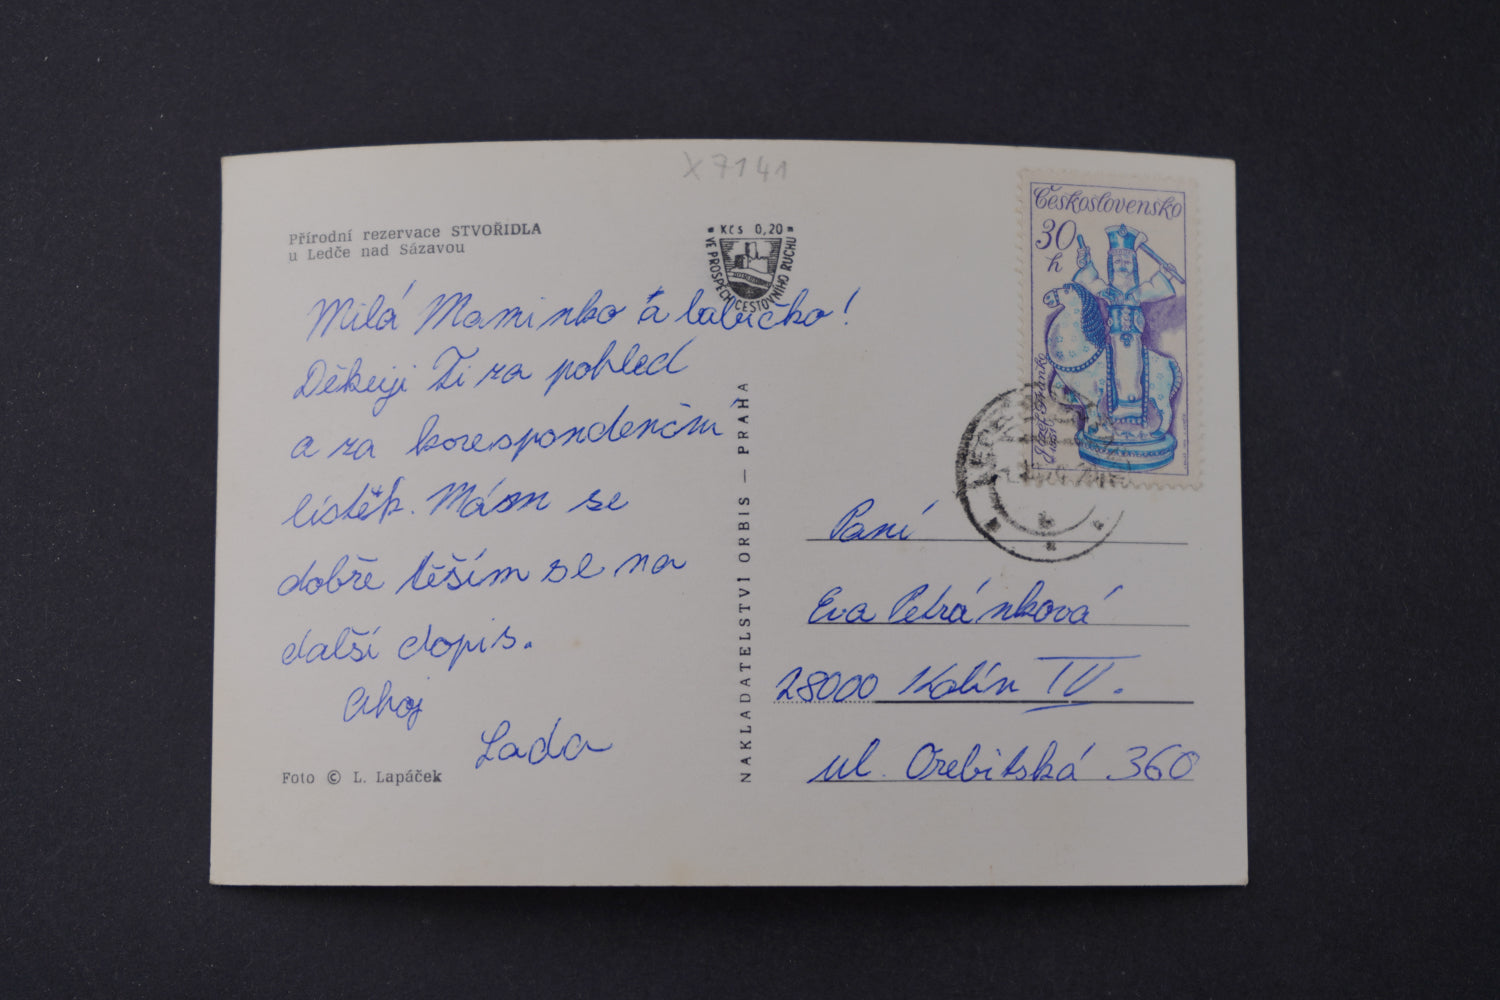 X 7141
Přírodní rezervace STVOŘIDLA
u Ledče nad Sázavou
Kčs 0,20
VE PROSPĚCH CESTOVNÍHO RUCHU
Milá Maminko a babičko!
Děkuji Ti za pohled
a za korespondenčm
lístěk. Mám se
dobře těším se na
další dopis.
Ahoj
Lada
Foto © L. Lapáček
NAKLADATELSTVÍ ORBIS — PRAHA
Československo
30
h
Paní
Eva Petránková
28000 Kolín IV.
ul. Orebitská 360